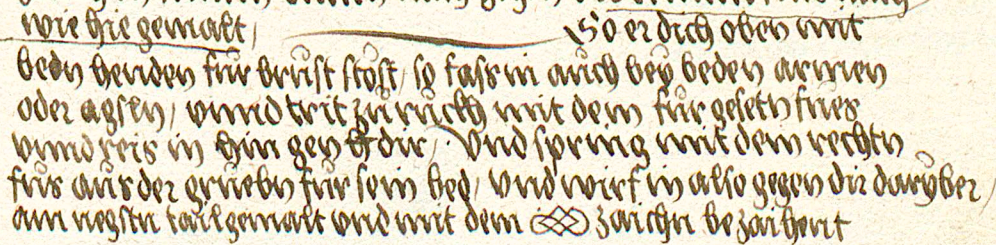 wie hie gemalt / So er dich oben mit
bedn henden für brust stost, so fass in auch bey beden armen
oder agsln, vnnd trit zu ruckh mit dem für gesetn fues
vnnd reis in hin gen dir, Vnd spring mit dem rechtn
fus aus der gruebn für sein bed, vnd wirf in also gegen dir daryber,
am negstn tail gemalt vnd mit dem zaichn bezaihent